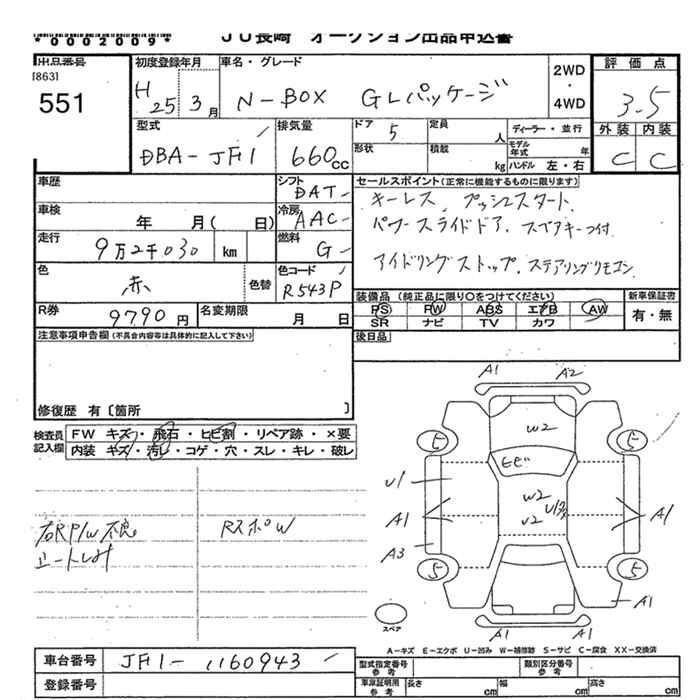 *0002009*
JU長崎 オークション出品申込書
出品番号
[863]
551
初度登録年月
H25 3月
車名・グレード
N-BOX GLパッケージ
2WD
・
4WD
評価点
3.5
外装 内装
C C
型式
DBA-JF1
排気量
660cc
ドア 5
形状
定員 人
積載 kg
ディーラー・並行
モデル年式 年
ハンドル 左・右
車歴
車検 年 月( 日)
走行
9万2千030 km
色
赤
色替
シフト
DAT
冷房
AAC
燃料
G
色コード
R543P
セールスポイント(正常に機能するものに限ります)
キーレス、プッシュスタート、
パワースライドドア、スペアキー付、
アイドリングストップ、ステアリングリモコン
R券
9790円
名変期限
月 日
装備品(純正品に限り〇をつけてください)
PS PW ABS エアB AW
SR ナビ TV カワ
新車保証書
有・無
注意事項申告欄(不具合内容等は具体的に記入して下さい)
後日品
修復歴 有〔箇所 〕
検査員記入欄
FW キズ・飛石・ヒビ割・リペア跡・×要
内装 キズ・汚レ・コゲ・穴・スレ・キレ・破レ
右RP/W不良
シートしみ
RスポW
A1 A2
W2
ヒビ
W2
U2
U1
A1
A3
A1
A1
A1
5 5
5 5
スペア
A-キズ E-エクボ U-凹み W-補修跡 S-サビ C-腐食 XX-交換済
車台番号
JF1-1160943
登録番号
型式指定番号
参考
類別区分番号
参考
車庫証明用
参考
長さ cm
幅 cm
高さ cm